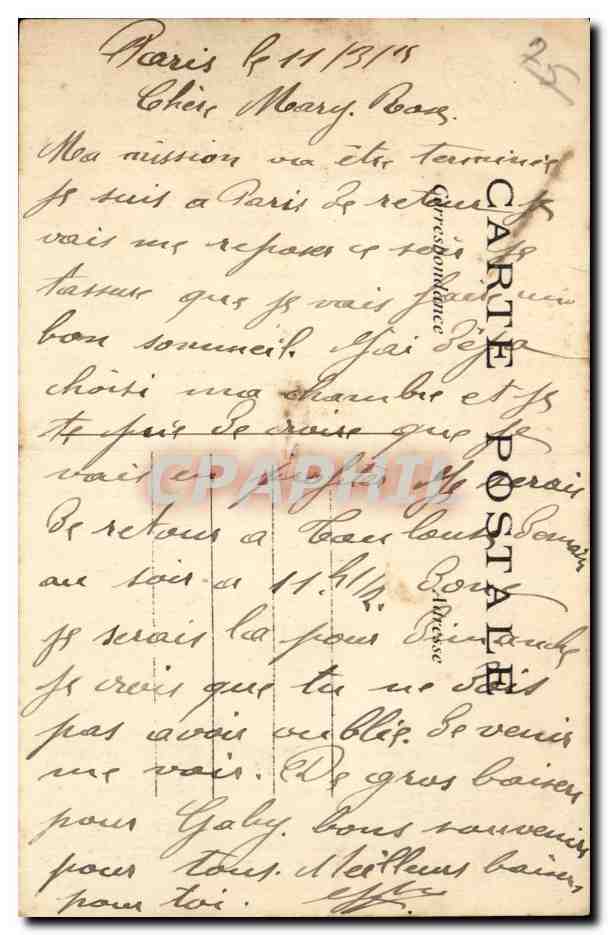 75
Paris le 11/3/15
Chère Mary. Rose.
Ma mission va être terminée
je suis a Paris de retour je
vais me reposer ce soir je
t'assure que je vais faire un
bon sommeil. J'ai déja
choisi ma chambre et je
te prie de croire que je
vais en profiter Je serai
de retour a Toulouse demain
au soir a 11.h1/2 Donc
je serais la pour Dimanche
je crois que tu ne dois
pas avoir oublié. de venir
me voir. De gros baisers
pour Gaby. bons souvenirs
pour tous. Meilleurs baisers
pour toi.
CARTE POSTALE
Correspondance
Adresse
CPAPHIL